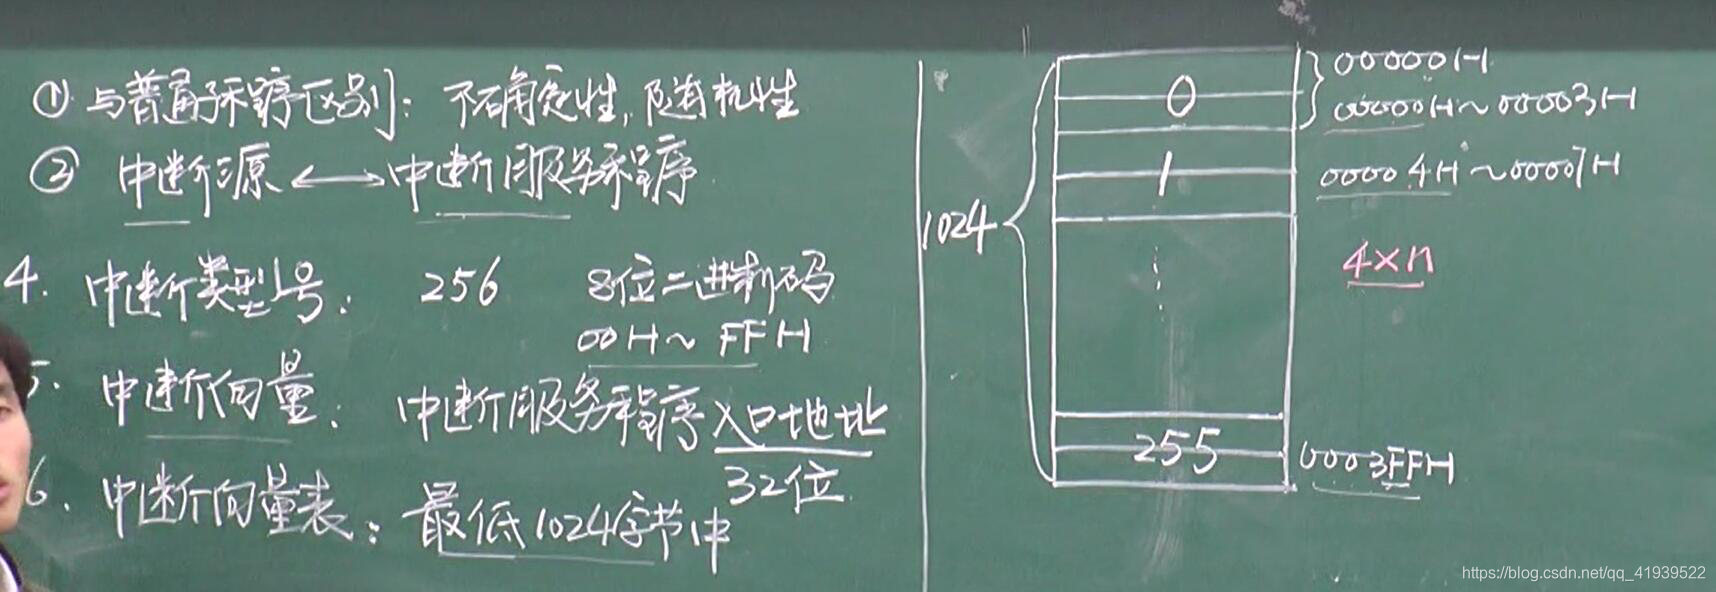 ① 与普通子程序区别: 不确定性, 随机性
② 中断源 ⟷ 中断服务程序
4. 中断类型号: 256 8位二进制码
00H~FFH
5. 中断向量: 中断服务程序入口地址
32位
6. 中断向量表: 最低1024字节中
1024
0
1
255
00000H
00000H~00003H
00004H~00007H
4×n
0003FFH
https://blog.csdn.net/qq_41939522